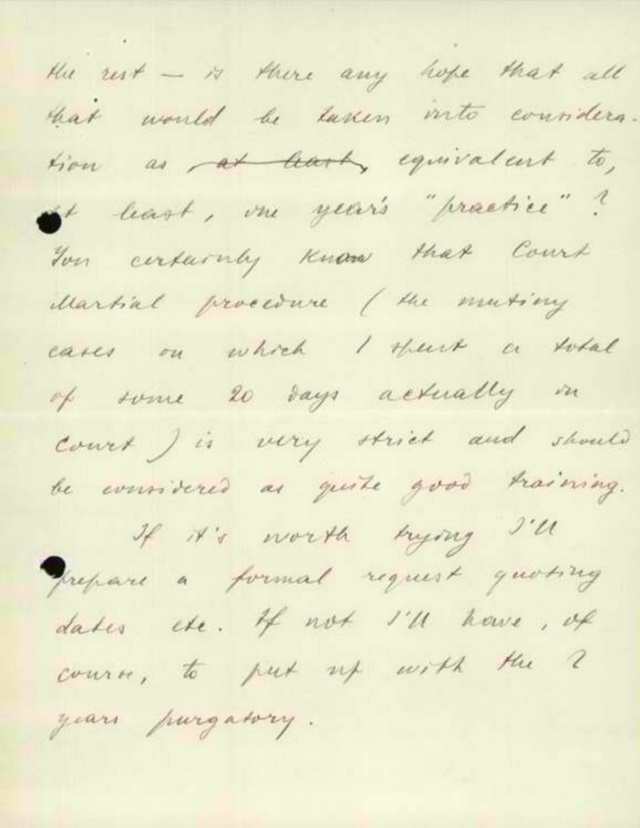 the rest – is there any hope that all
that would be taken into considera-
tion as at least, equivalent to,
at least, one year's "practice" ?
You certainly know that Court
Martial procedure ( the mutiny
cases on which I spent a total
of some 20 days actually in
court ) is very strict and should
be considered as quite good training.
If it's worth trying I'll
prepare a formal request quoting
dates etc. If not I'll have, of
course, to put up with the 2
years purgatory.